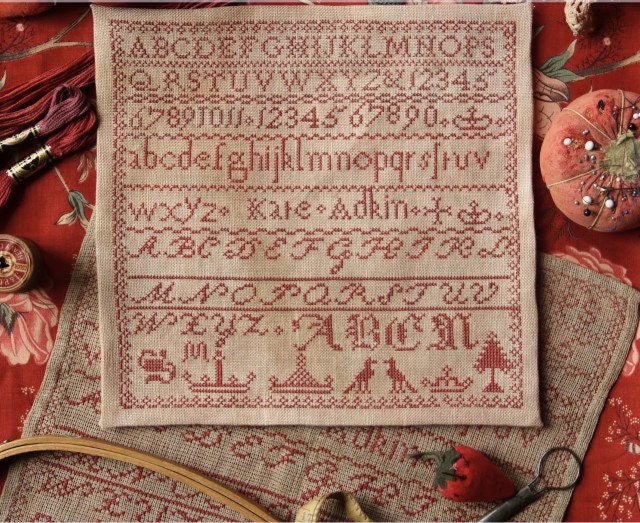 ABCDEFGHIJKLMNOPS
QRSTUVWXYZ&12345
67891011·1234567890·
abcdefghijklmnopqrsſtuv
wxyz· Kate·Adkin·
ABCDEFGHIKL
MNOPQRSTUV
WXYZ·ABCN
m
Adkin